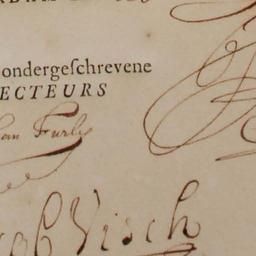 ondergeſchrevene
ECTEURS
an Furly
ob Visch